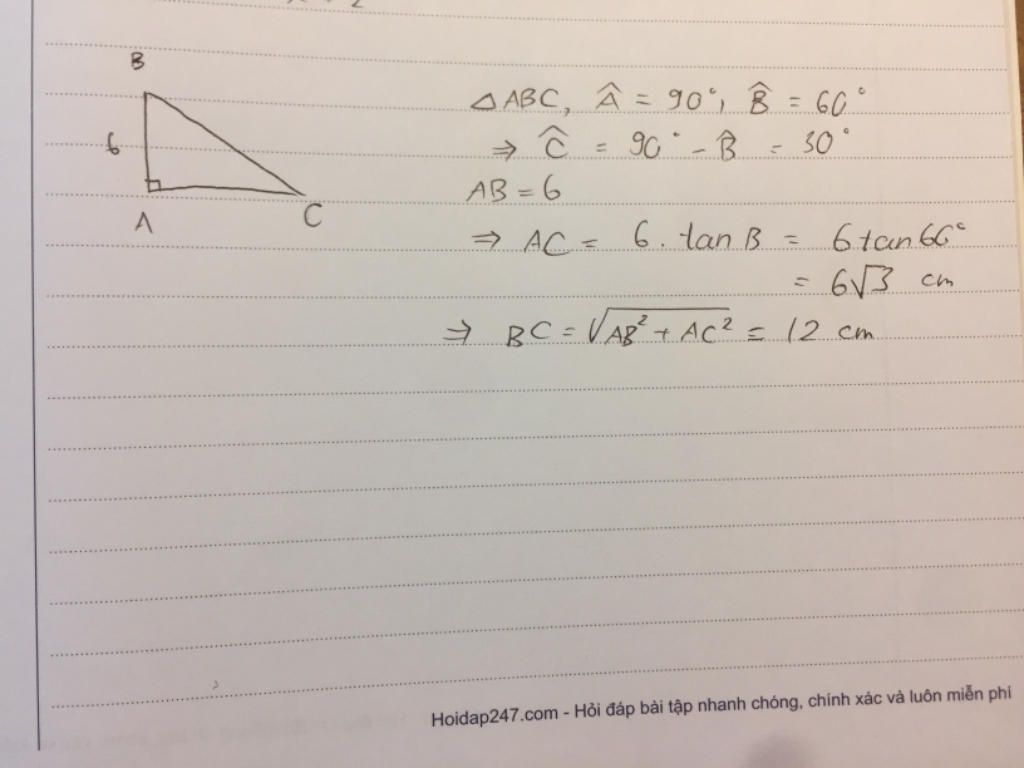 B
6
A
C
△ABC, Â = 90°, B̂ = 60°
⇒ Ĉ = 90° - B̂ = 30°
AB = 6
⇒ AC = 6 . tan B = 6 tan 60°
= 6√3 cm
⇒ BC = √(AB² + AC²) = 12 cm
Hoidap247.com - Hỏi đáp bài tập nhanh chóng, chính xác và luôn miễn phí